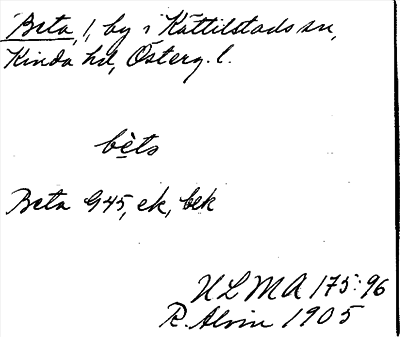 Beta, 1, by i Kättilstads sn,
Kinda hd, Österg. l.
bèts
Beta G45, ek, bek
ULMA 175:96
R. Alvin 1905